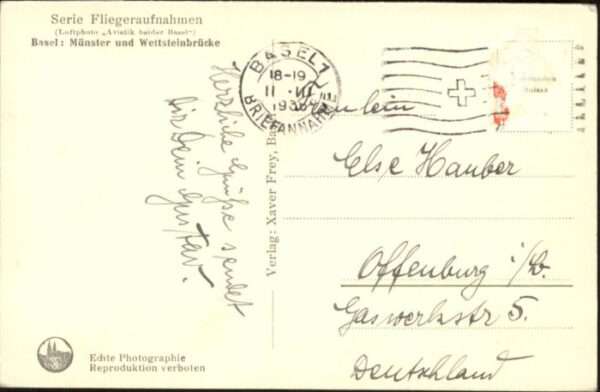 Serie Fliegeraufnahmen
(Luftphoto „Aviatik beider Basel“)
Basel: Münster und Wettsteinbrücke
Herzliche Grüße sendet
dir Dein Gustav.
Verlag: Xaver Frey, Ba
BASEL 1
18-19
11 III
BRIEFANNAHME
Fräulein
Else Hauber
Offenburg i/B.
Gaswerkstr 5.
Deutschland
Echte Photographie
Reproduktion verboten